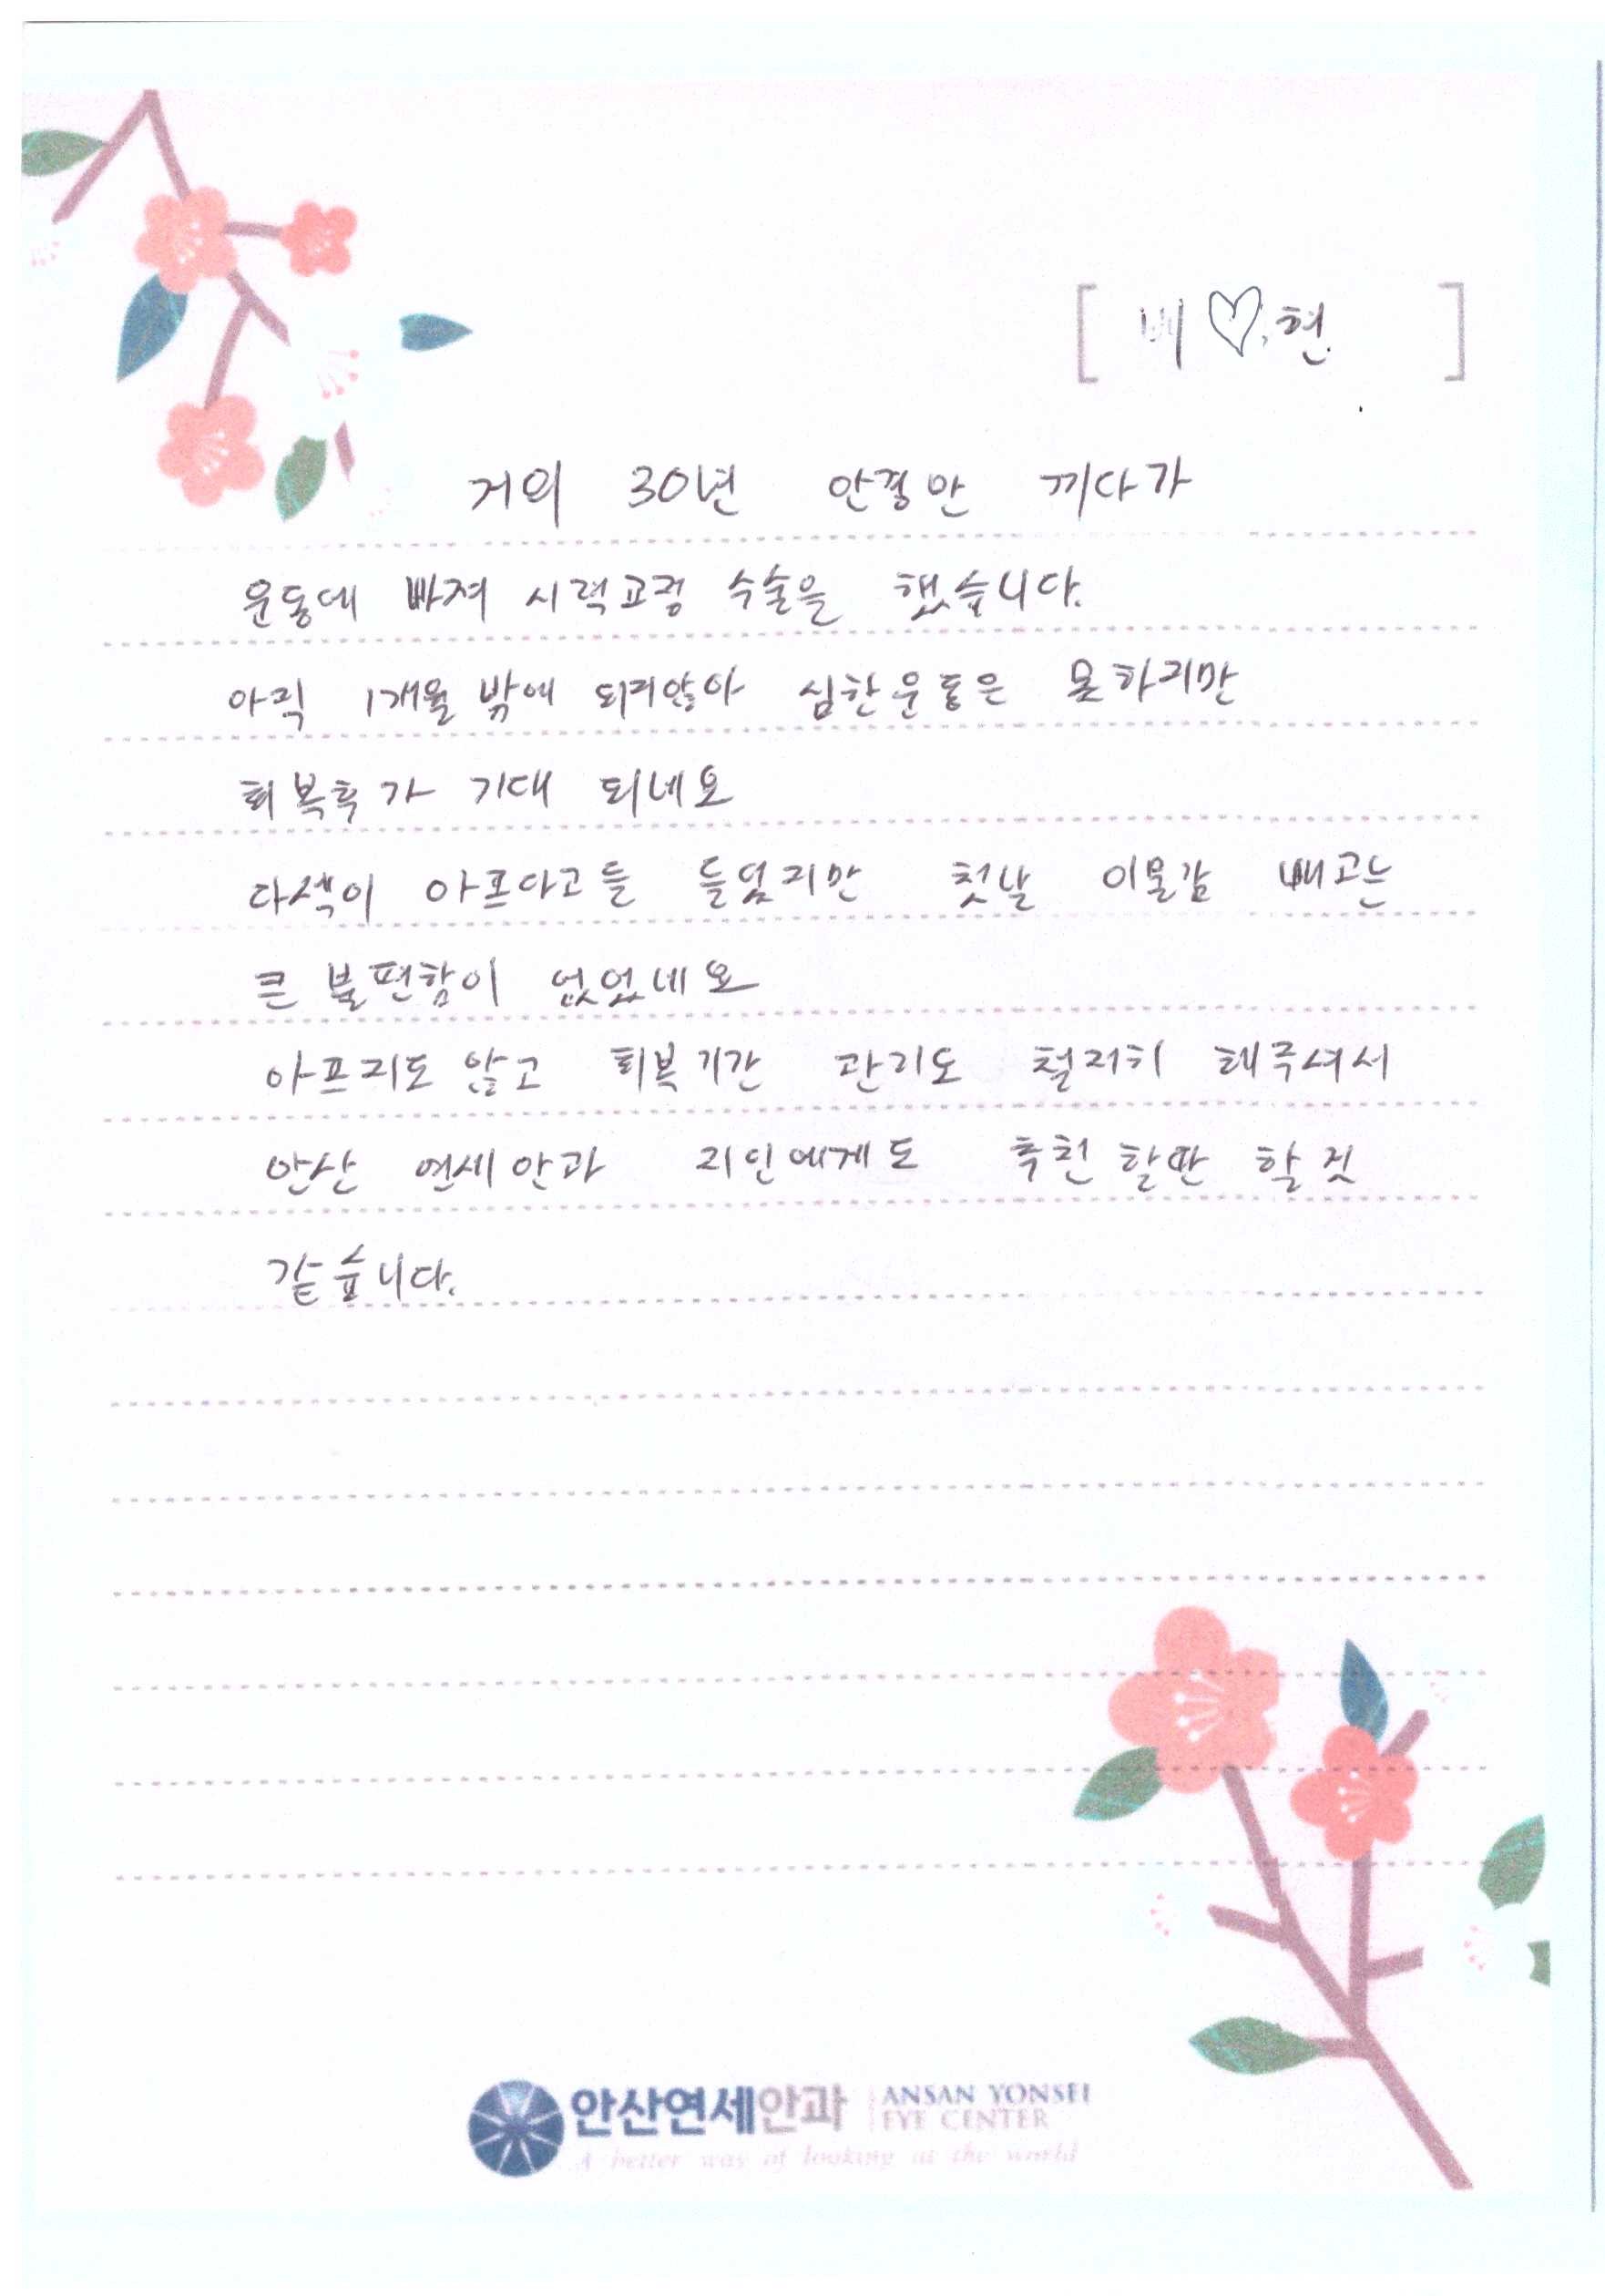 [ 배 ♡ 현 ]
거의 30년 안경만 끼다가
운동에 빠져 시력교정 수술을 했습니다.
아직 1개월 밖에 되지않아 심한운동은 못하지만
회복후가 기대 되네요
다섹이 아프다고들 들었지만 첫날 이물감 빼고는
큰 불편함이 없었네요
아프지도 않고 회복기간 관리도 철저히 해주셔서
안산 연세안과 지인에게도 추천 할만 할 것
같습니다.
안산연세안과 ANSAN YONSEI
EYE CENTER
A better way of looking at the world